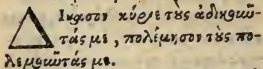 Δίκασον κύριε τοὺς ἀδικοῦν-
τάς με, πολέμησον τοὺς πο-
λεμοῦντάς με.